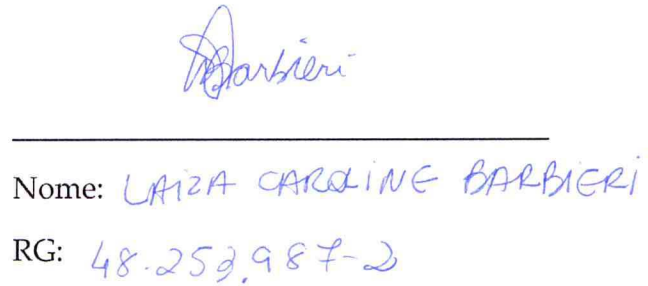 Barbieri
Nome: LAIZA CAROLINE BARBIERI
RG: 48.253.987-2